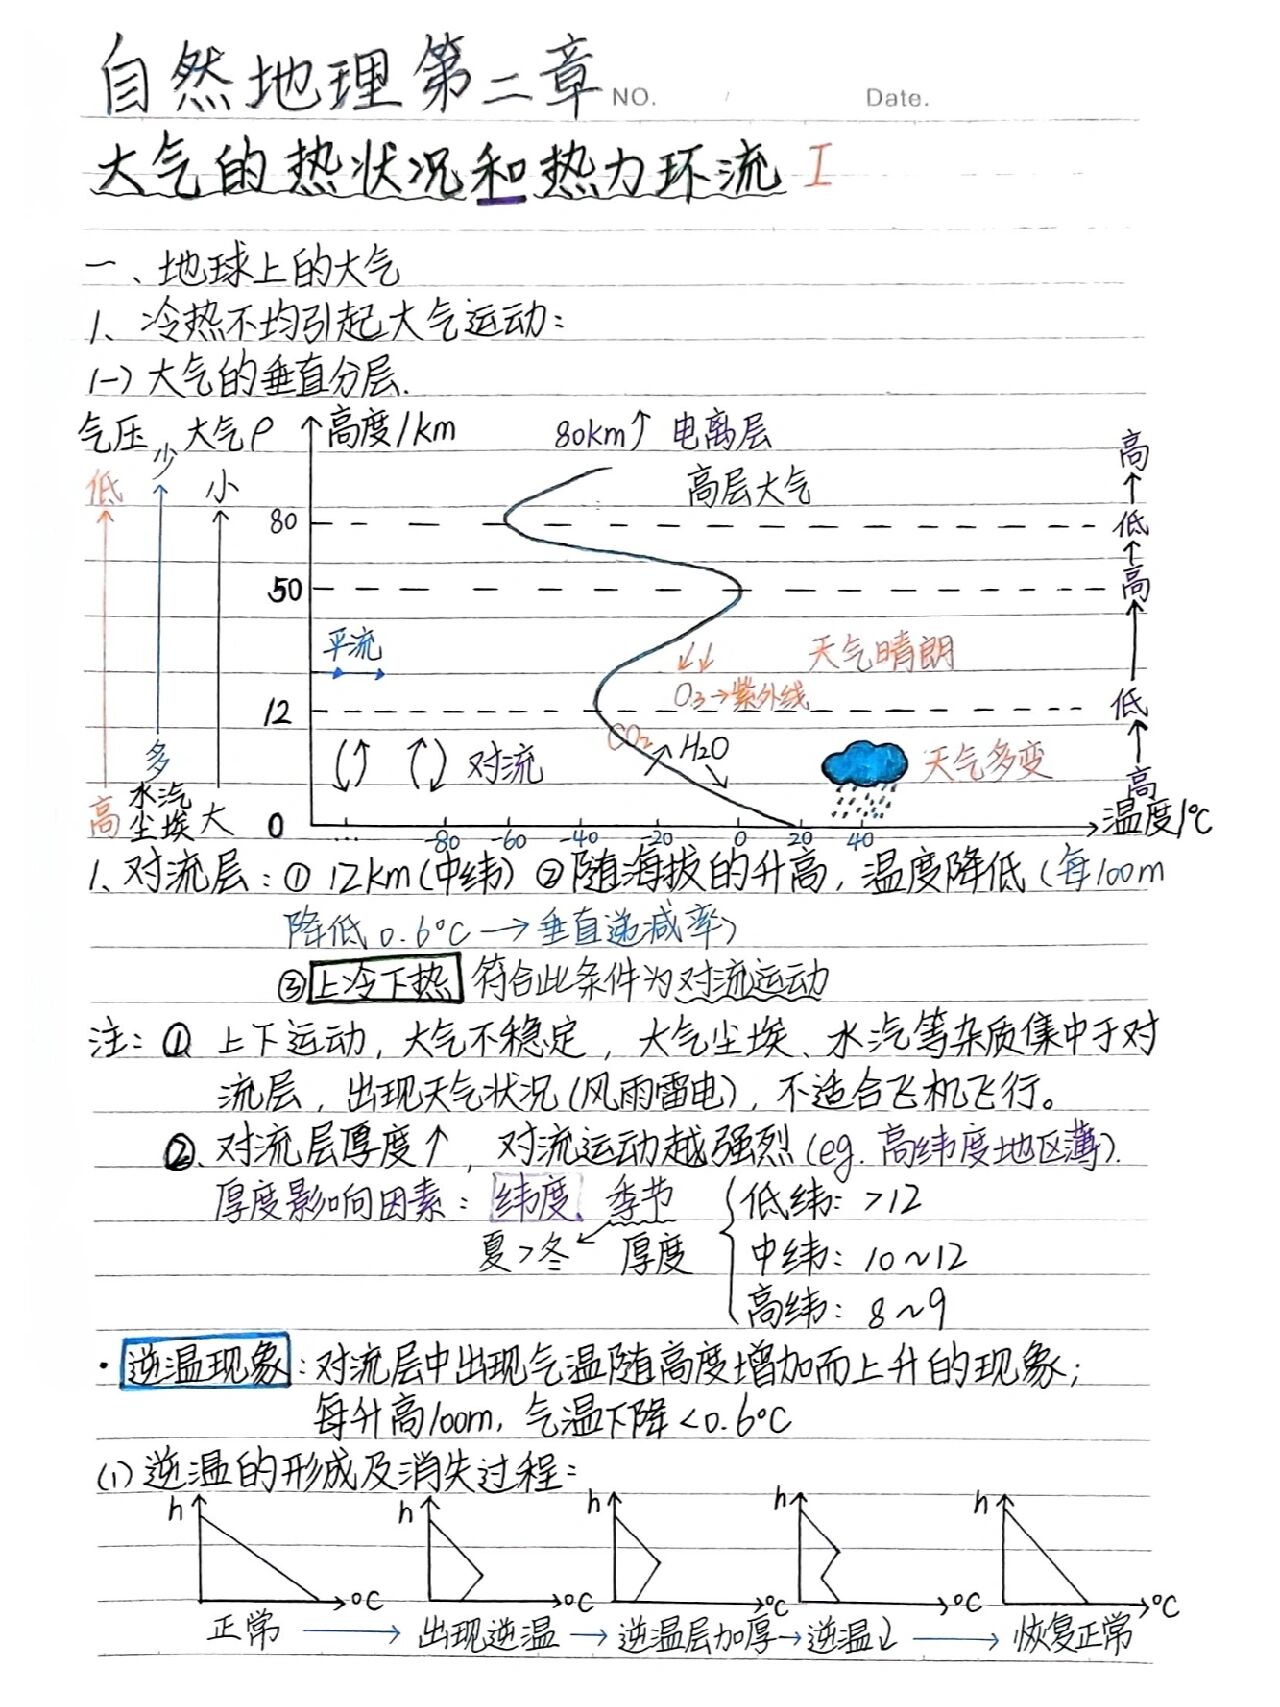 自然地理第二章 NO. Date.
大气的热状况和热力环流 I
一、地球上的大气
1、冷热不均引起大气运动：
(一) 大气的垂直分层.
气压 大气ρ 高度/km 80km↑ 电离层
低 少 小 高层大气 高
80 低
50 高
平流 天气晴朗
O₃→紫外线
12 低
CO₂ H₂O
多 对流 天气多变
高 水汽 尘埃 大 0 高
... -80 -60 -40 -20 0 20 40 温度/℃
1、对流层：① 12km(中纬) ②随海拔的升高，温度降低（每100m
降低0.6℃→垂直递减率）
③上冷下热 符合此条件为对流运动
注：① 上下运动，大气不稳定，大气尘埃、水汽等杂质集中于对
流层，出现天气状况(风雨雷电)，不适合飞机飞行。
②、对流层厚度↑，对流运动越强烈(eg. 高纬度地区薄).
厚度影响因素：纬度、季节 低纬：>12
夏>冬 厚度 中纬：10~12
高纬：8~9
·逆温现象：对流层中出现气温随高度增加而上升的现象；
每升高100m，气温下降<0.6℃
(1) 逆温的形成及消失过程：
h h h h h
℃ ℃ ℃ ℃ ℃
正常 → 出现逆温 → 逆温层加厚→逆温↓ → 恢复正常